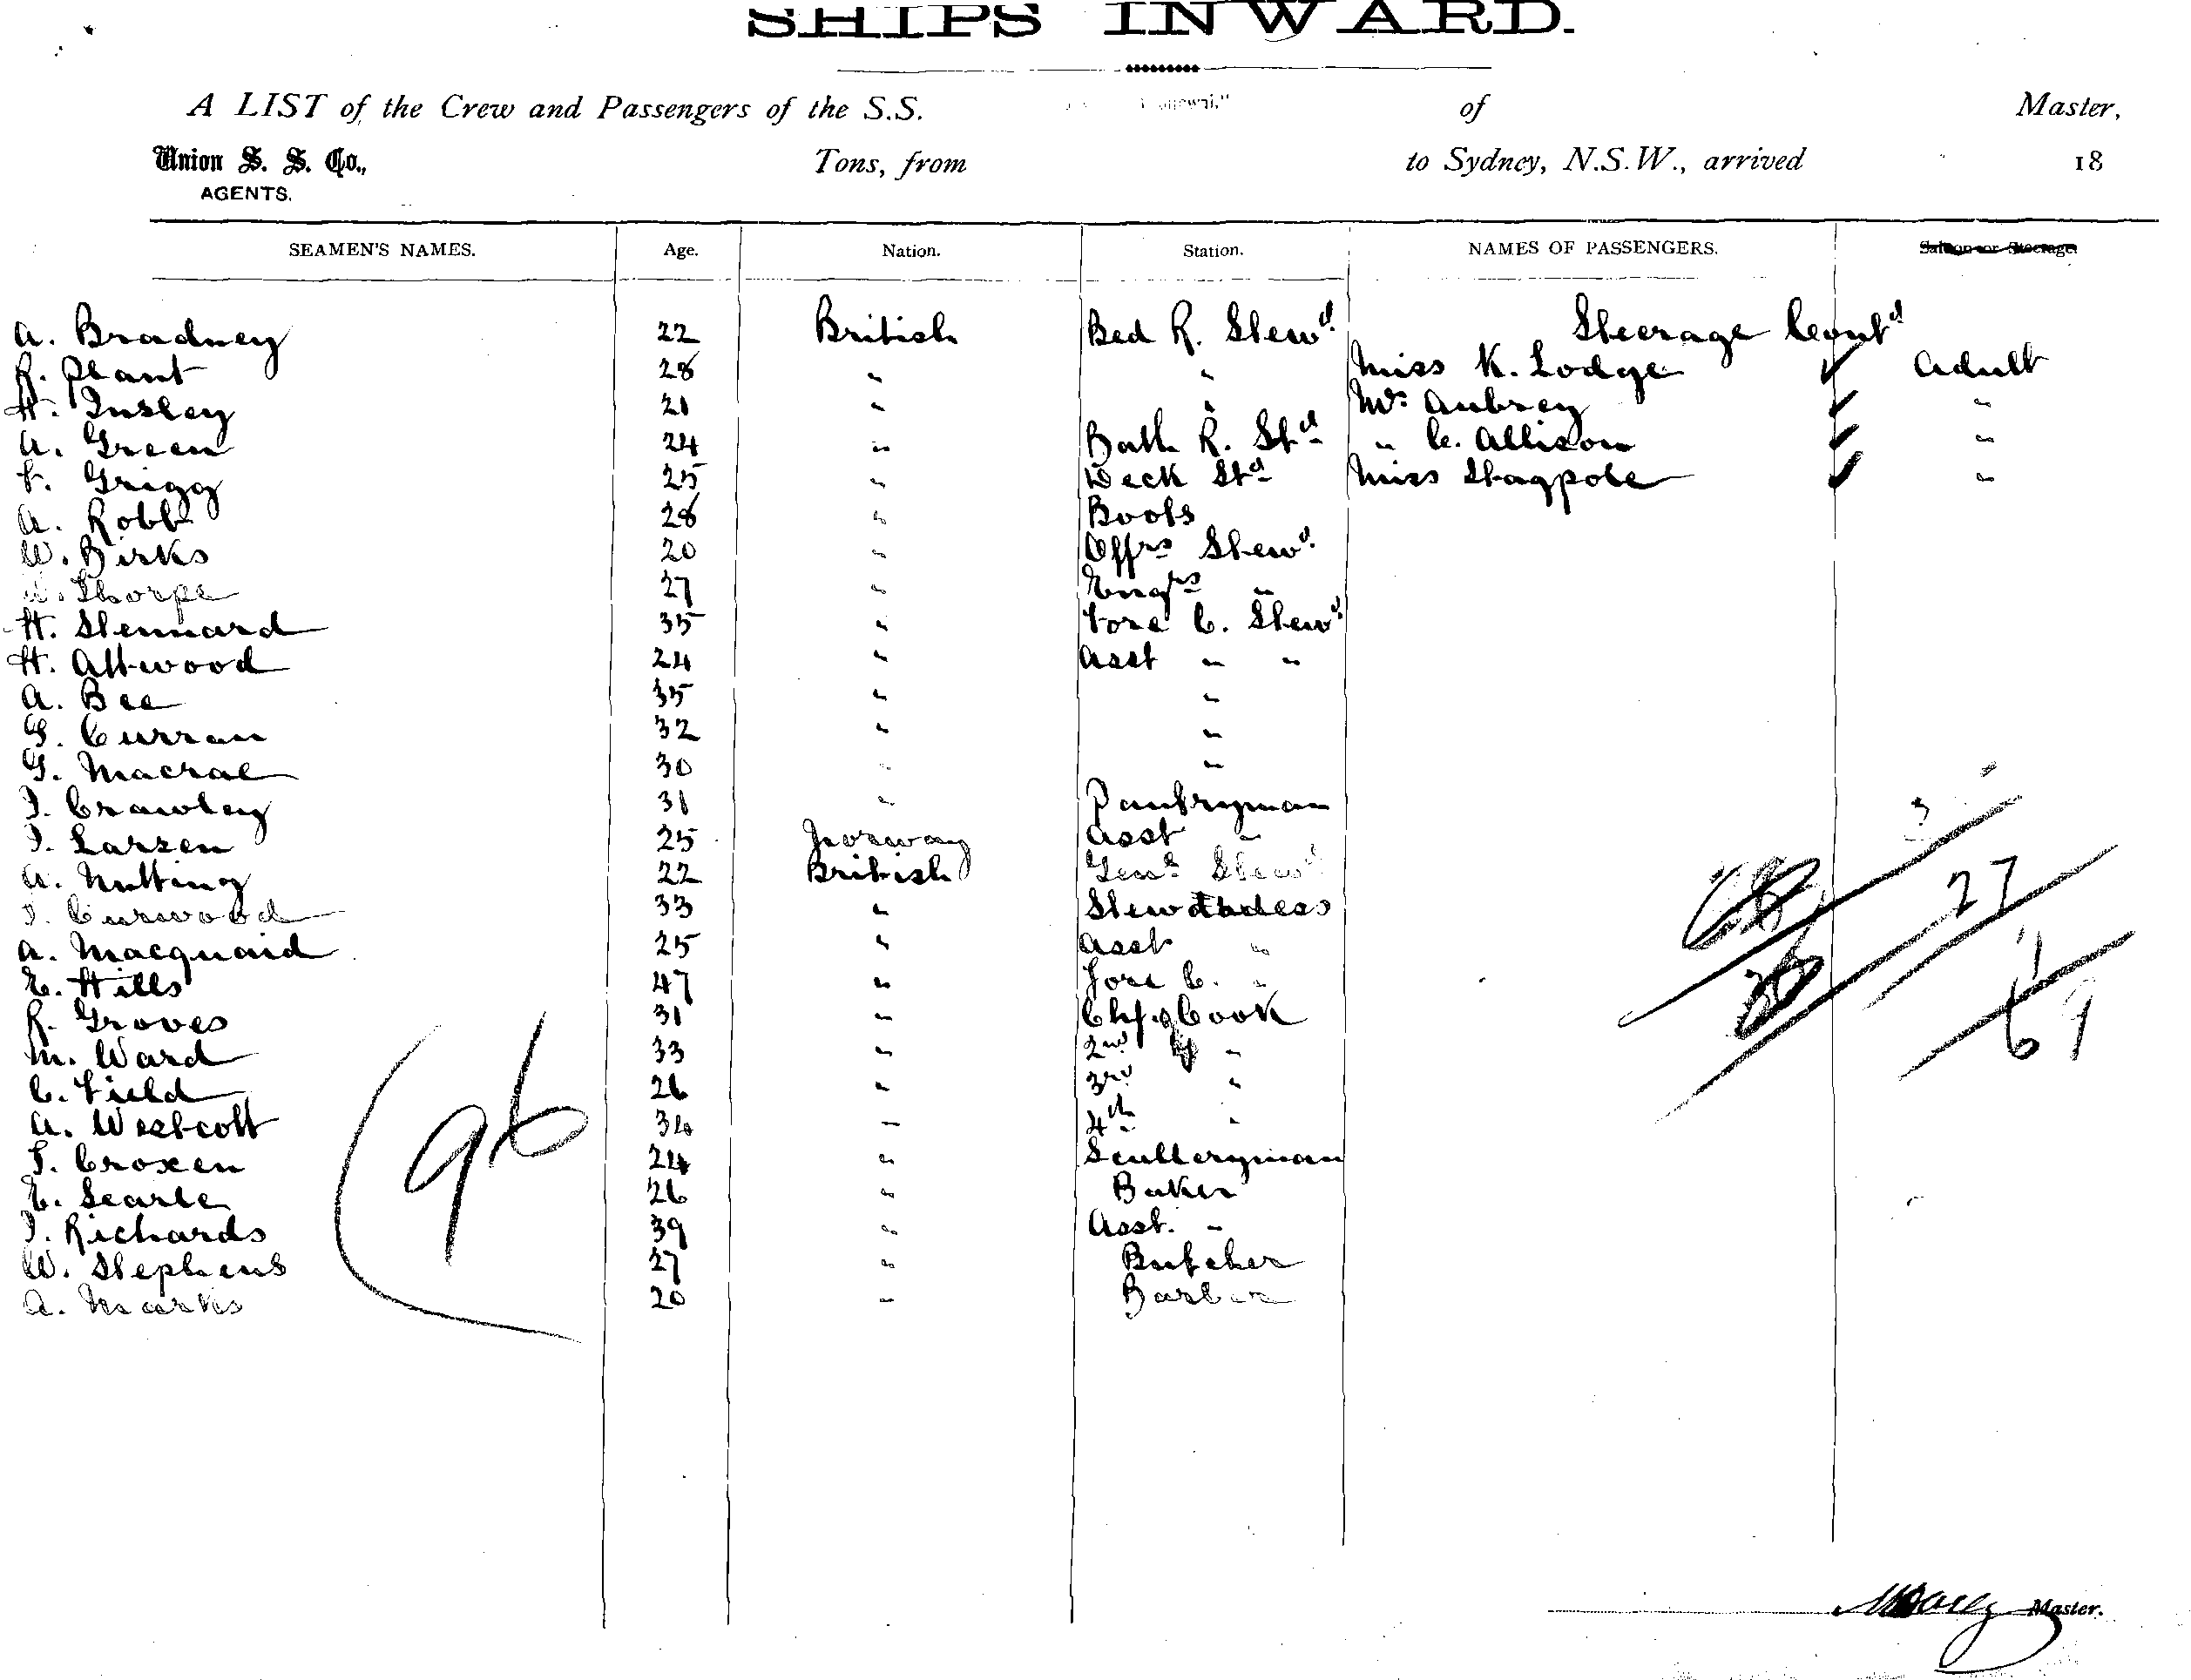 SHIPS INWARD.
A LIST of the Crew and Passengers of the S.S. of Master,
Union S. S. Co., Tons, from to Sydney, N.S.W., arrived 18
AGENTS.
SEAMEN'S NAMES. Age. Nation. Station. NAMES OF PASSENGERS. Saloon or Steerage.
A. Bradney 22 British Bed R. Stewd. Steerage Contd
R. Plant 28 " " Miss K. Lodge Adult
H. Insley 21 " " Mr. Aubrey "
A. Green 24 " Bath R. Std " C. Allison "
F. Grigg 25 " Deck Std Miss Stagpole "
A. Robb 28 " Boots
W. Birks 20 " Offrs Stewd.
Thorpe 27 " Engrs "
H. Stennard 35 " Fore C. Stewd
H. Attwood 24 " Asst " "
A. Bee 35 " "
G. Curran 32 " "
G. Macrae 30 " "
J. Crawley 31 " Pantryman
J. Larsen 25 Norway Asst "
A. Nutting 22 British Genl Stewd
J. Curwood 33 " Stewardess
A. Macquaid 25 " Asst "
E. Hills 47 " Fore C. "
R. Groves 31 " Chf. Cook
M. Ward 33 " 2nd "
C. Field 26 " 3rd "
A. Westcott 34 " 4th "
F. Croxen 24 " Sculleryman
E. Searle 26 " Baker
J. Richards 39 " Asst. "
W. Stephens 27 " Butcher
A. Marks 20 " Barber
96
3
27
69
Master.